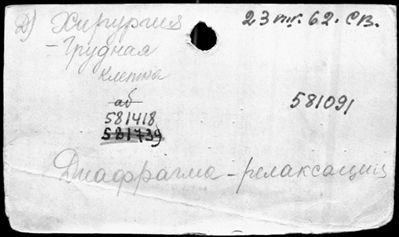 Д) Хирургия 23 III. 62. СВ.
- Грудная
клетка
аб
581418 581091
581739
Диафрагма - релаксация